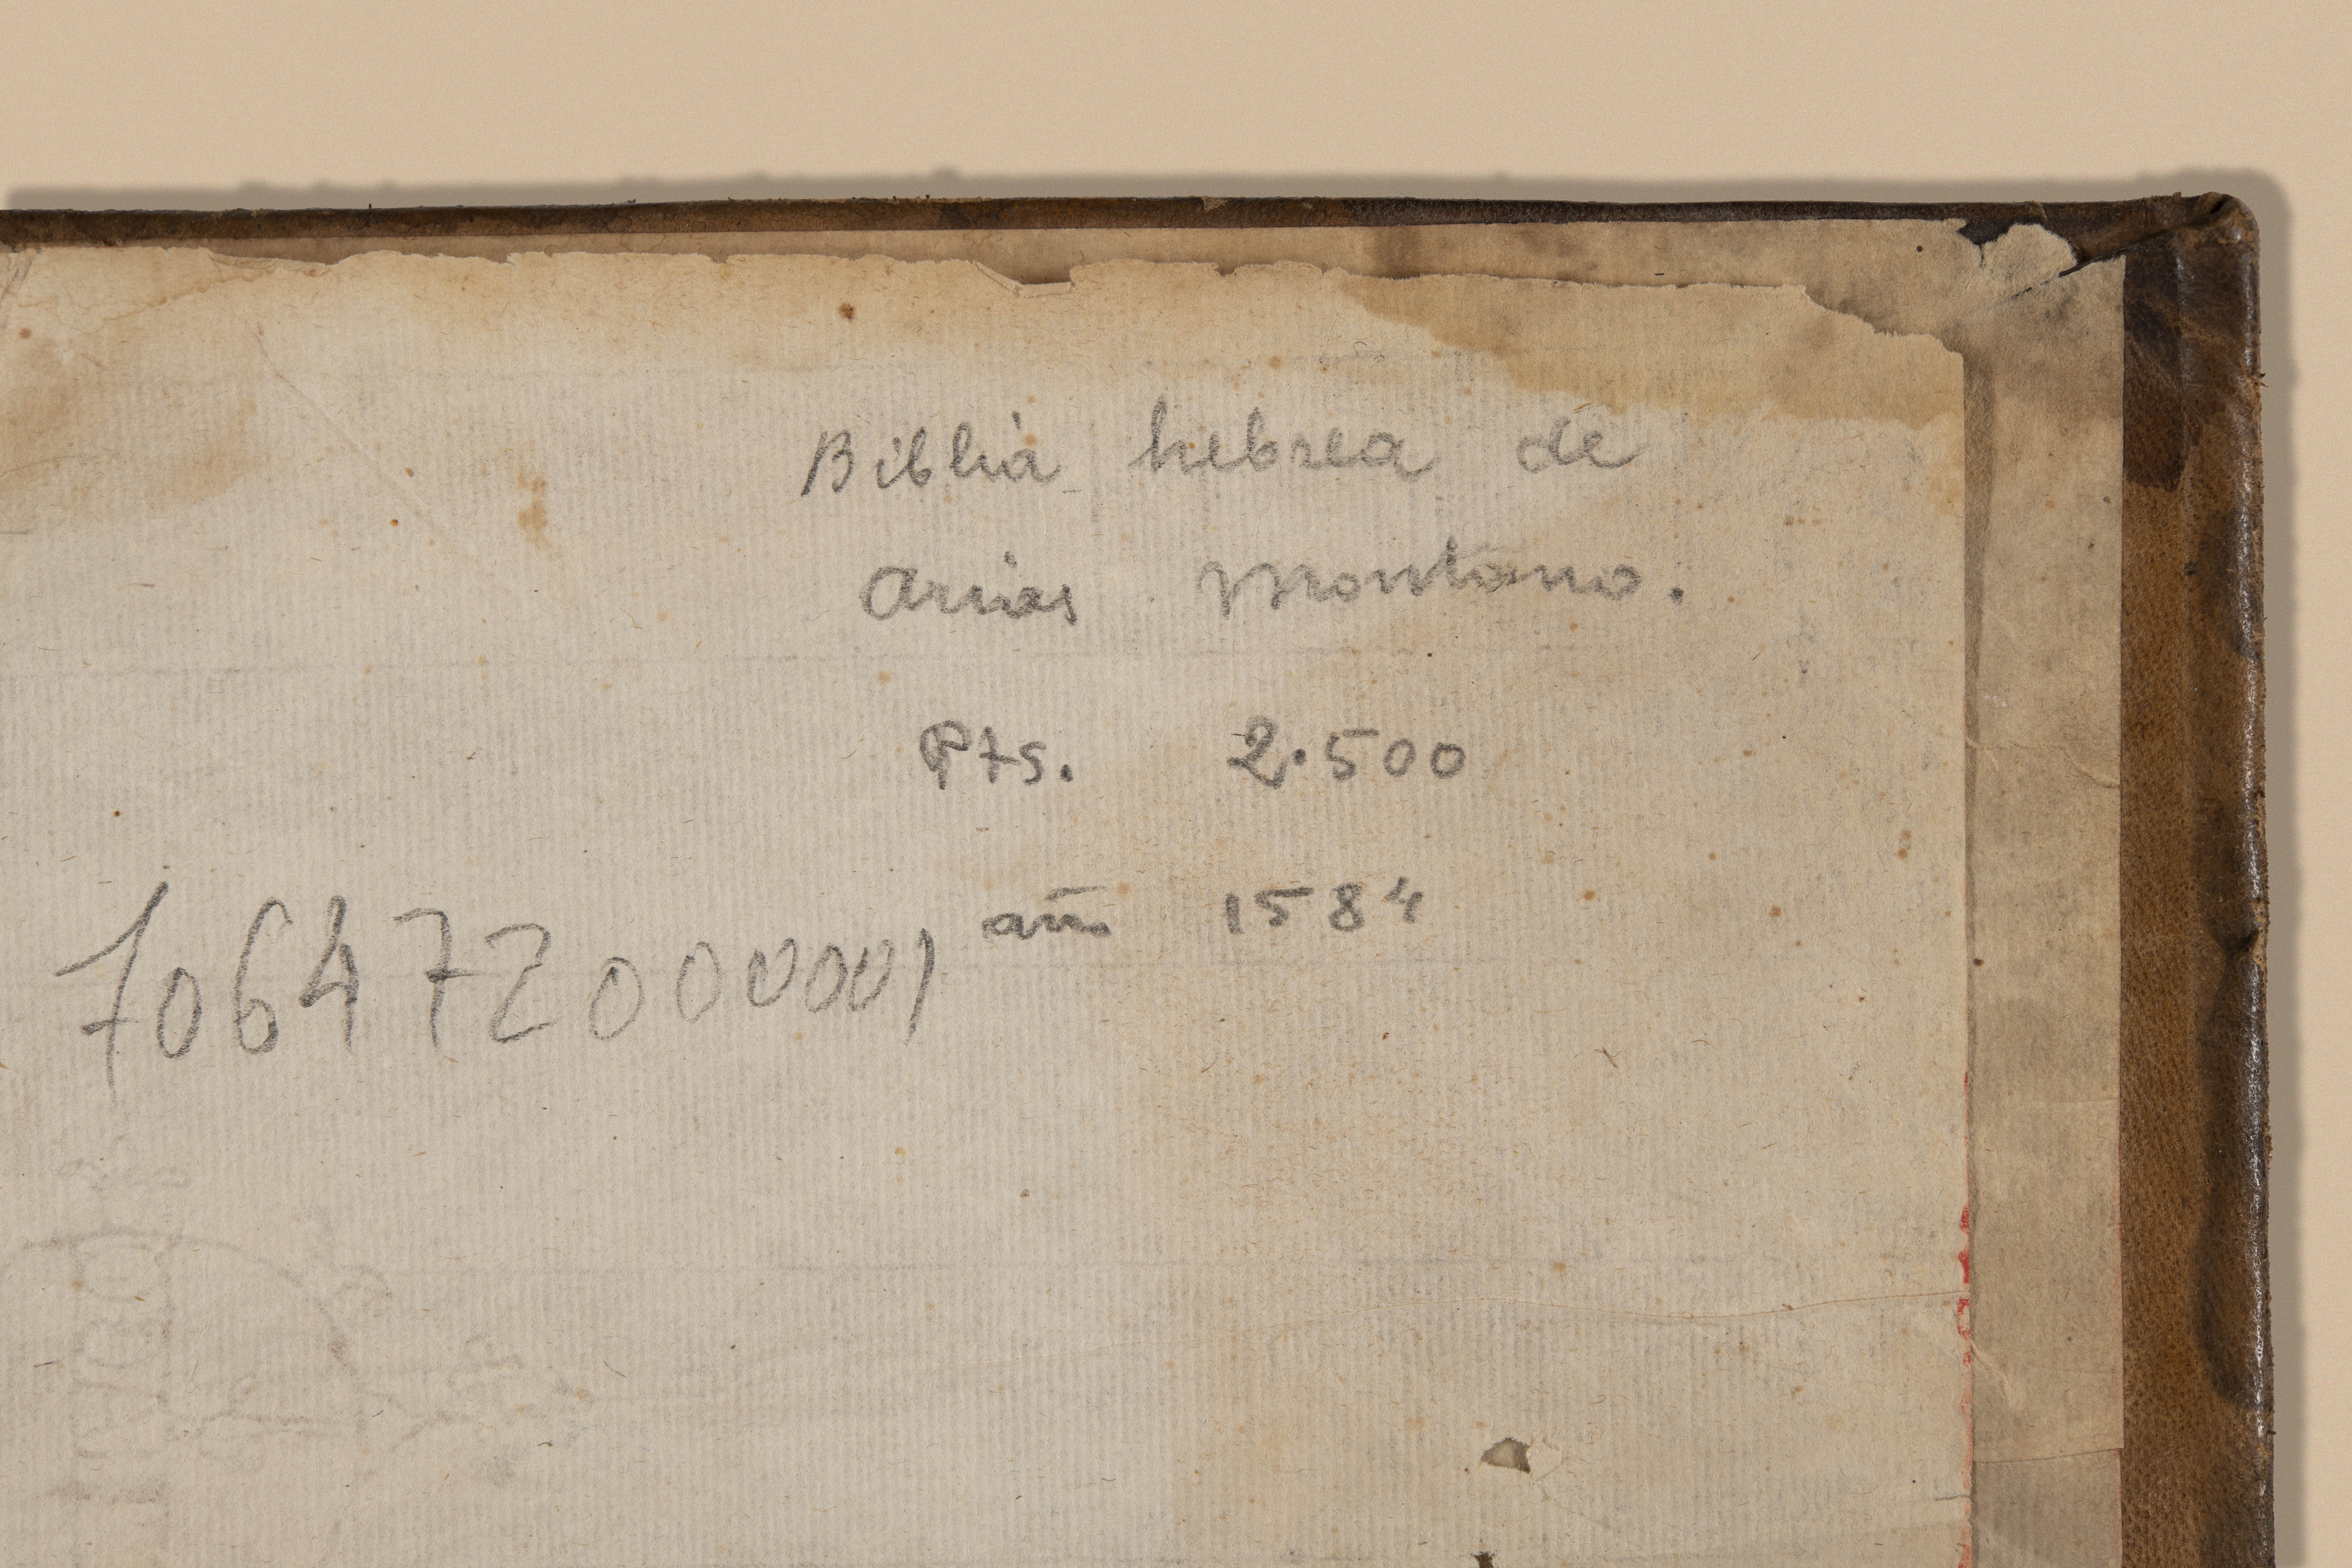 Biblia hebrea de
Arias Montano.
Pts. 2.500
año 1584
706472000001